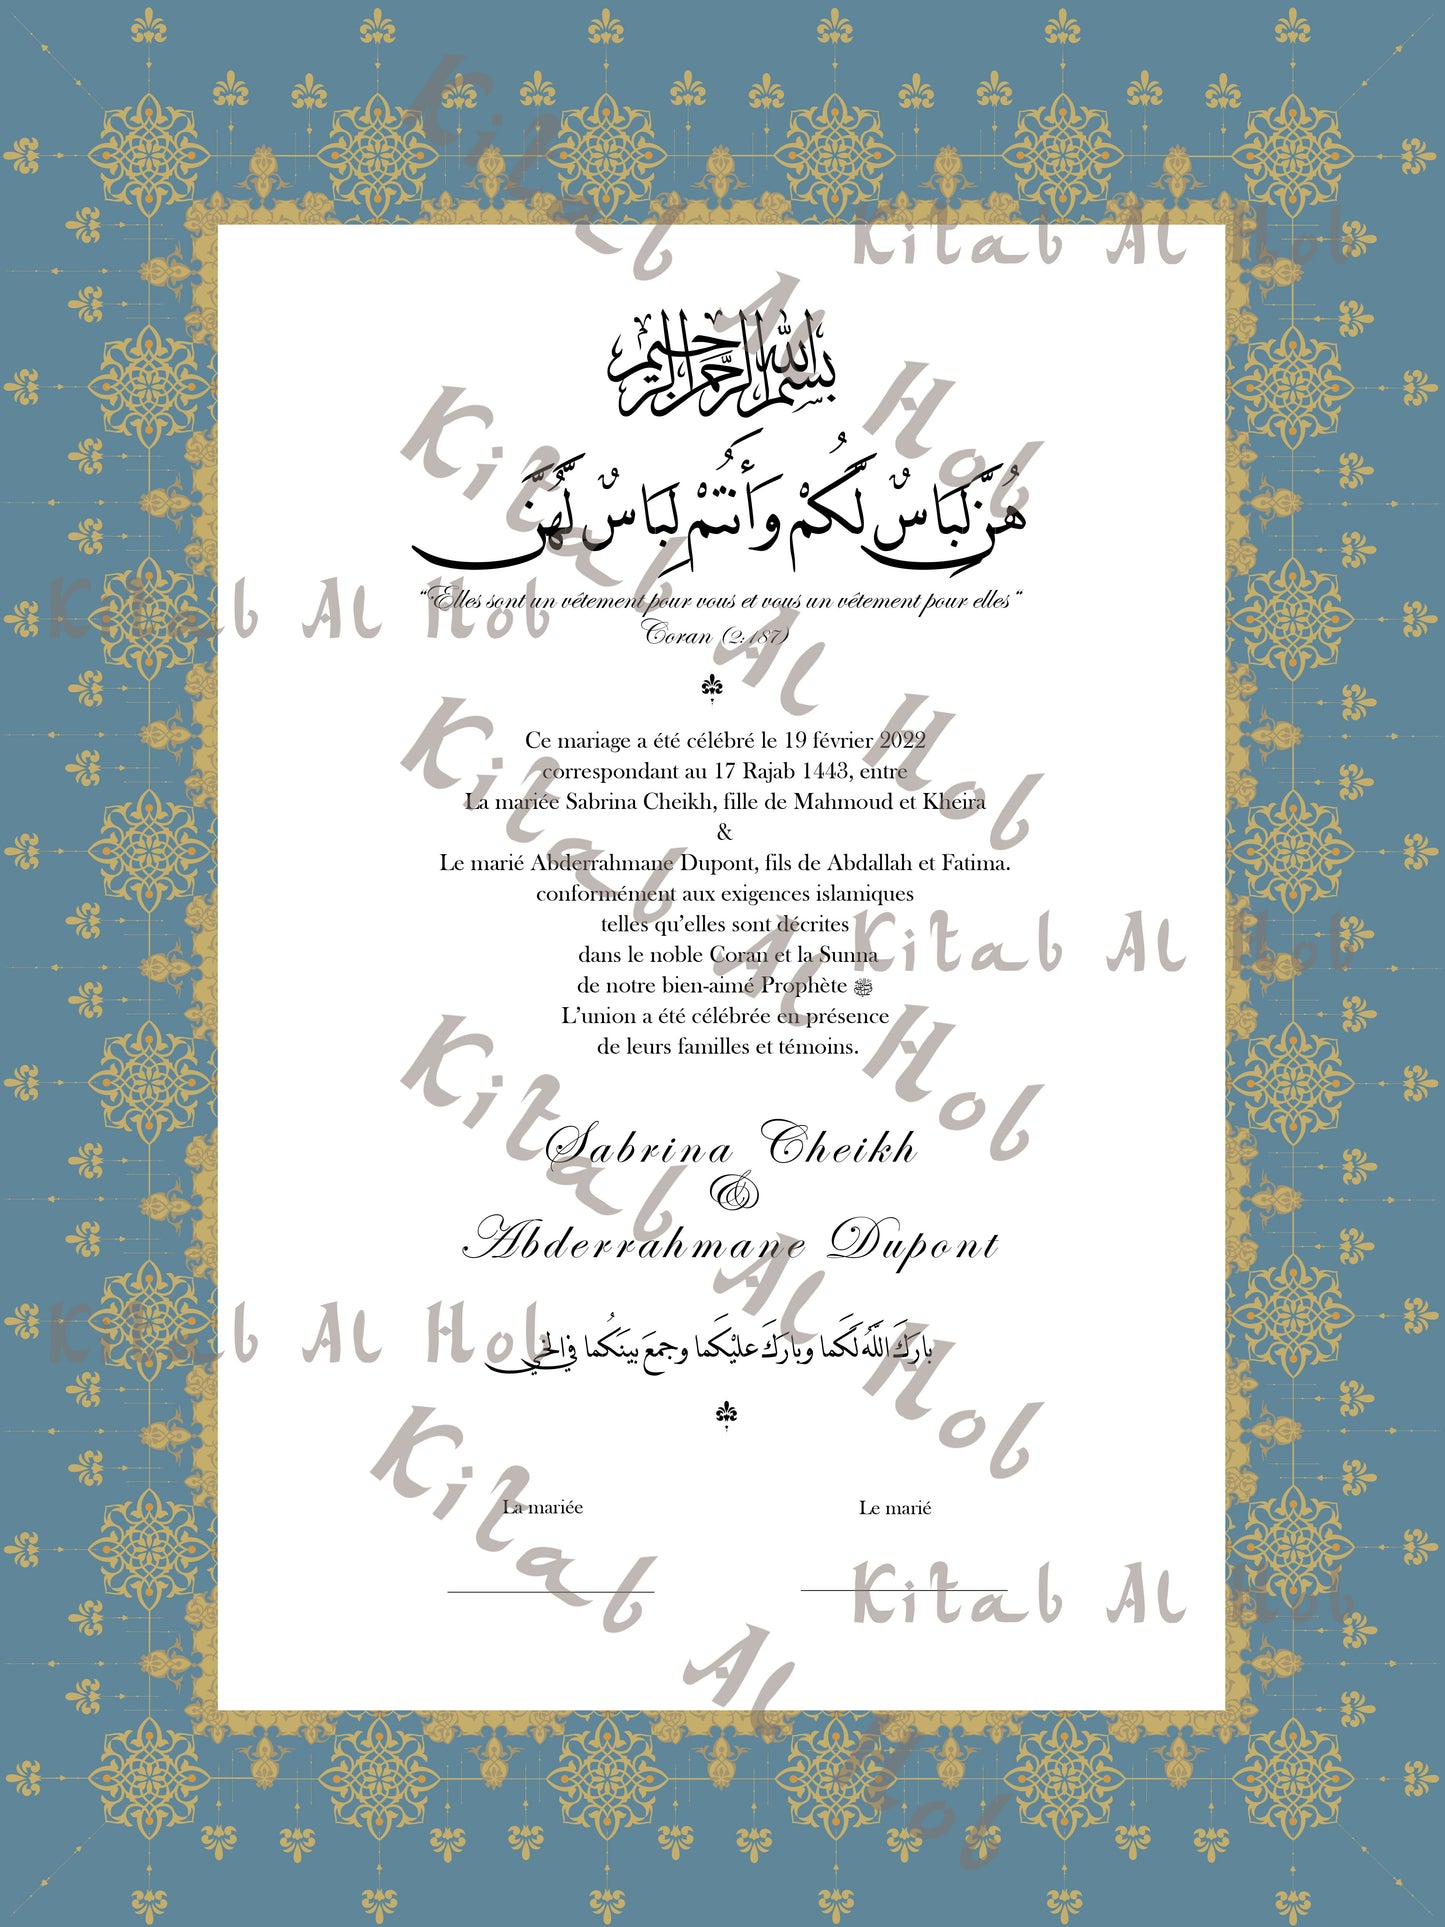 بسم الله الرحمن الرحيم
هُنَّ لِبَاسٌ لَّكُمْ وَأَنتُمْ لِبَاسٌ لَّهُنَّ
“Elles sont un vêtement pour vous et vous un vêtement pour elles“
Coran (2:187)
Ce mariage a été célébré le 19 février 2022
correspondant au 17 Rajab 1443, entre
La mariée Sabrina Cheikh, fille de Mahmoud et Kheira
&
Le marié Abderrahmane Dupont, fils de Abdallah et Fatima.
conformément aux exigences islamiques
telles qu’elles sont décrites
dans le noble Coran et la Sunna
de notre bien-aimé Prophète ﷺ
L’union a été célébrée en présence
de leurs familles et témoins.
Sabrina Cheikh
&
Abderrahmane Dupont
بارَكَ اللَّهُ لَكَما وبارَكَ عليْكَما وجمعَ بينَكُما في الخي
La mariée
Le marié
Kitab Al Hob
Kitab Al Hob
Kitab Al Hob
Kitab Al Hob
Kitab Al Hob
Kitab Al Hob
Kitab Al Hob
Kitab Al Hob
Kitab Al Hob
Kitab Al Hob